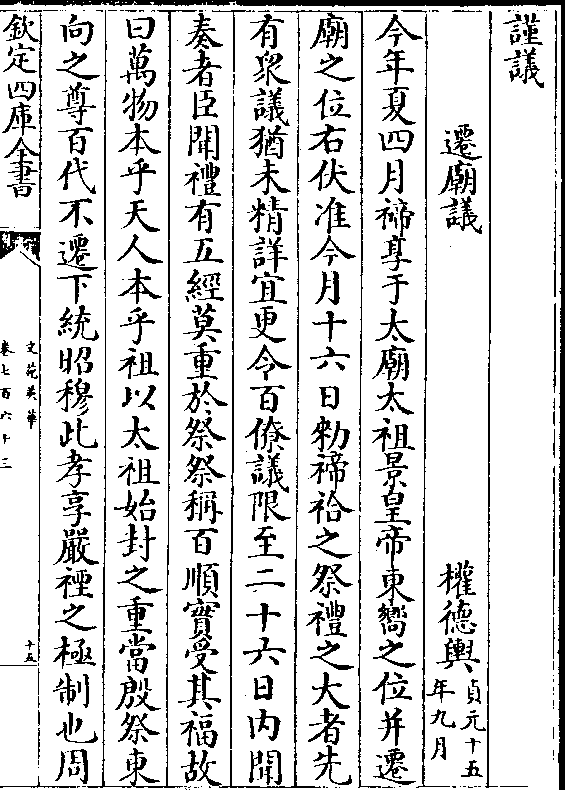 謹議
遷廟議
權德輿
貞元十五
年九月
今年夏四月禘享于太廟太祖景皇帝東嚮之位并遷
廟之位右伏准今月十六日勑禘祫之祭禮之大者先
有衆議猶未精詳宜更令百僚議限至二十六日内聞
奏者臣聞禮有五經莫重於祭祭稱百順實受其福故
曰萬物本乎天人本乎祖以太祖始封之重當殷祭東
向之尊百代不遷下統昭穆此孝享嚴禋之極制也周
欽定四庫全書
文苑英華
卷七百六十三
十五